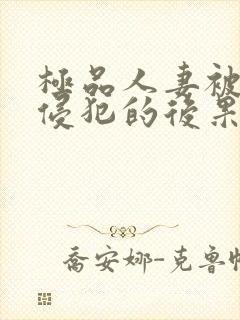 極品人妻被
侵犯的後果
喬安娜-克鲁